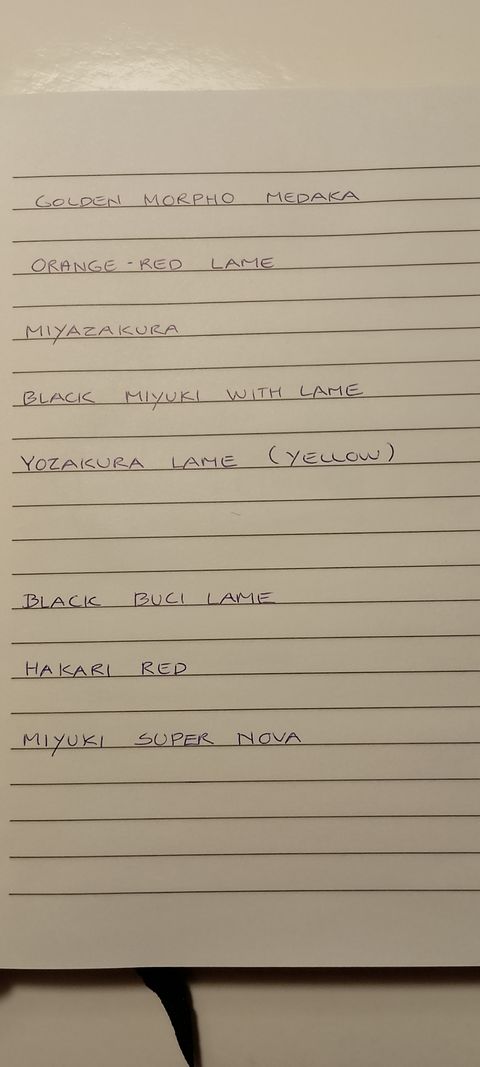 GOLDEN MORPHO MEDAKA
ORANGE-RED LAME
MIYAZAKURA
BLACK MIYUKI WITH LAME
YOZAKURA LAME (YELLOW)
BLACK BUCI LAME
HAKARI RED
MIYUKI SUPER NOVA